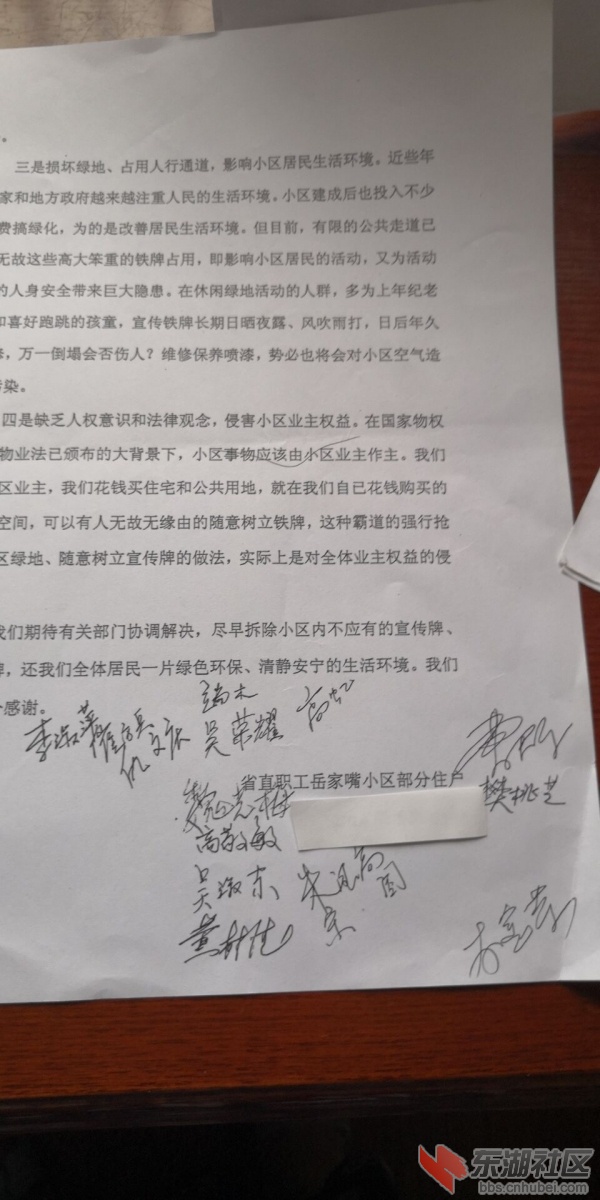 。
三是损坏绿地、占用人行通道，影响小区居民生活环境。近些年
家和地方政府越来越注重人民的生活环境。小区建成后也投入不少
费搞绿化，为的是改善居民生活环境。但目前，有限的公共走道已
无故这些高大笨重的铁牌占用，即影响小区居民的活动，又为活动
的人身安全带来巨大隐患。在休闲绿地活动的人群，多为上年纪老
和喜好跑跳的孩童，宣传铁牌长期日晒夜露、风吹雨打，日后年久
，万一倒塌会否伤人？维修保养喷漆，势必也将会对小区空气造
污染。
四是缺乏人权意识和法律观念，侵害小区业主权益。在国家物权
物业法已颁布的大背景下，小区事物应该由小区业主作主。我们
区业主，我们花钱买住宅和公共用地，就在我们自已花钱购买的
空间，可以有人无故无缘由的随意树立铁牌，这种霸道的强行抢
区绿地、随意树立宣传牌的做法，实际上是对全体业主权益的侵
我们期待有关部门协调解决，尽早拆除小区内不应有的宣传牌、
牌，还我们全体居民一片绿色环保、清静安宁的生活环境。我们
感谢。
吴荣耀
省直职工岳家嘴小区部分住户
樊桃芝
高敬敏
东湖社区
bbs.cnhubei.com